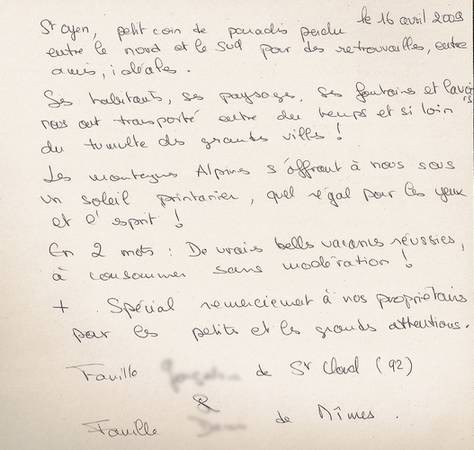 le 16 avril 2009
St oyen, petit coin de paradis perdu
entre le nord et le sud pour des retrouvailles, entre
amis, idéales.
Ses habitants, ses paysage, ses fontaines et lavoirs
nous ont transporté outre du temps et si loin
du tumulte des grandes villes !
Les montagnes Alpines s'offrant à nous sous
un soleil printanier, quel régal pour les yeux
et l'esprit !
En 2 mots : De vraies belles vacances réussies,
à consommer sans modération !
+ Spécial remerciement à nos propriétaires
pour les petites et les grandes attentions.
Famille de St Cloud (92)
&
Famille de Nîmes.